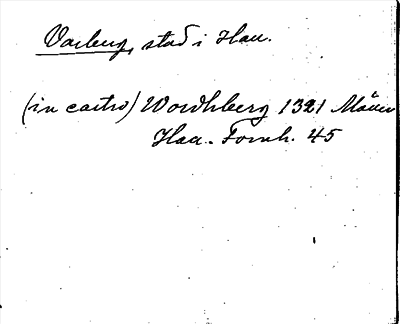 Varberg, stad i Hall.
(in castro) Wordhberg 1321
Hall. Fornh. 45